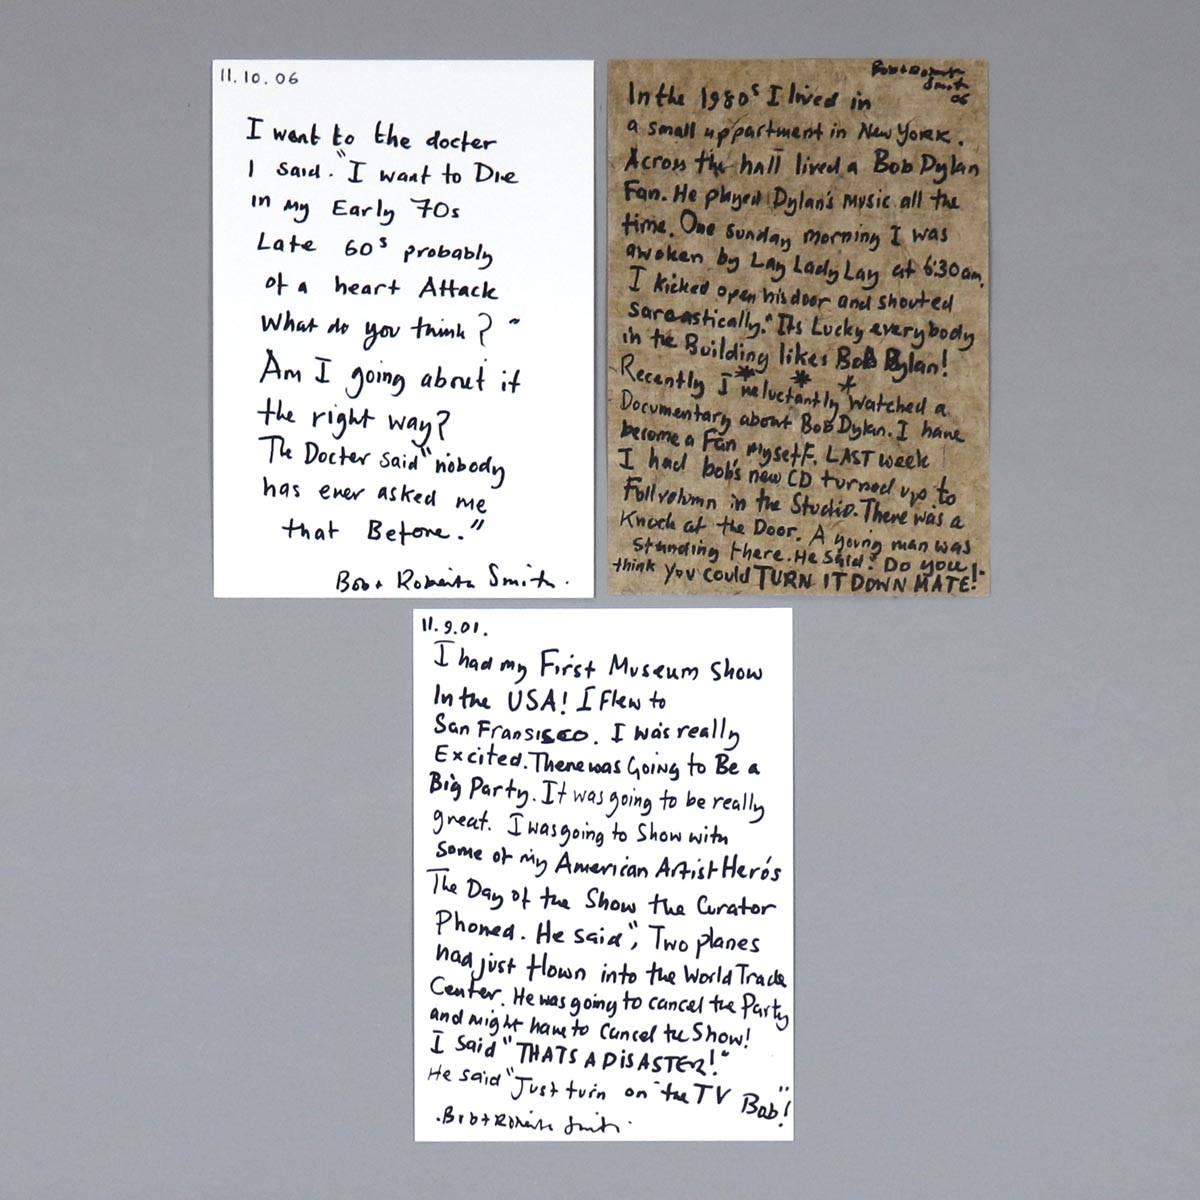 11.10.06
I went to the docter
I said. "I want to Die
in my Early 70s
Late 60s probably
of a heart Attack
What do you think?"
Am I going about it
the right way?
The Docter said "nobody
has ever asked me
that Before."
Bob + Roberta Smith.
Bob + Roberta
Smith
06
In the 1980s I lived in
a small uppartment in New York.
Across the hall lived a Bob Dylan
Fan. He played Dylan's music all the
time. One sunday morning I was
awoken by Lay Lady Lay at 6:30am.
I kicked open his door and shouted
sarcastically. "Its Lucky everybody
in the Building likes Bob Dylan!
* * *
Recently I reluctantly watched a
Documentary about Bob Dylan. I have
become a Fan myself. LAST week
I had bob's new CD turned up to
Full volumn in the Studio. There was a
Knock at the Door. A young man was
standing there. He Said? Do you
think you could TURN IT DOWN MATE!"
11.9.01.
I had my First Museum Show
In the USA! I Flew to
San Fransisco. I was really
Excited. There was Going to Be a
Big Party. It was going to be really
great. I was going to Show with
some of my American Artist Hero's
The Day of the Show the Curator
Phoned. He said", Two planes
had just flown into the World Trade
Center. He was going to cancel the Party
and might have to Cancel the Show!
I Said "THATS A DISASTER!"
He said "Just turn on the TV Bob"!
.Bob + Roberta Smith.